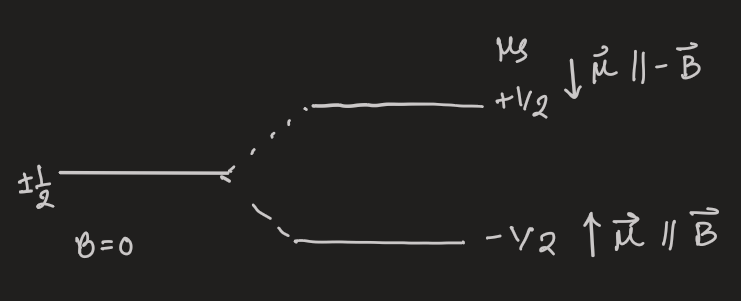 μs
+1/2 ↓ μ⃗ || - B⃗
±1/2
B=0
-1/2 ↑ μ⃗ || B⃗